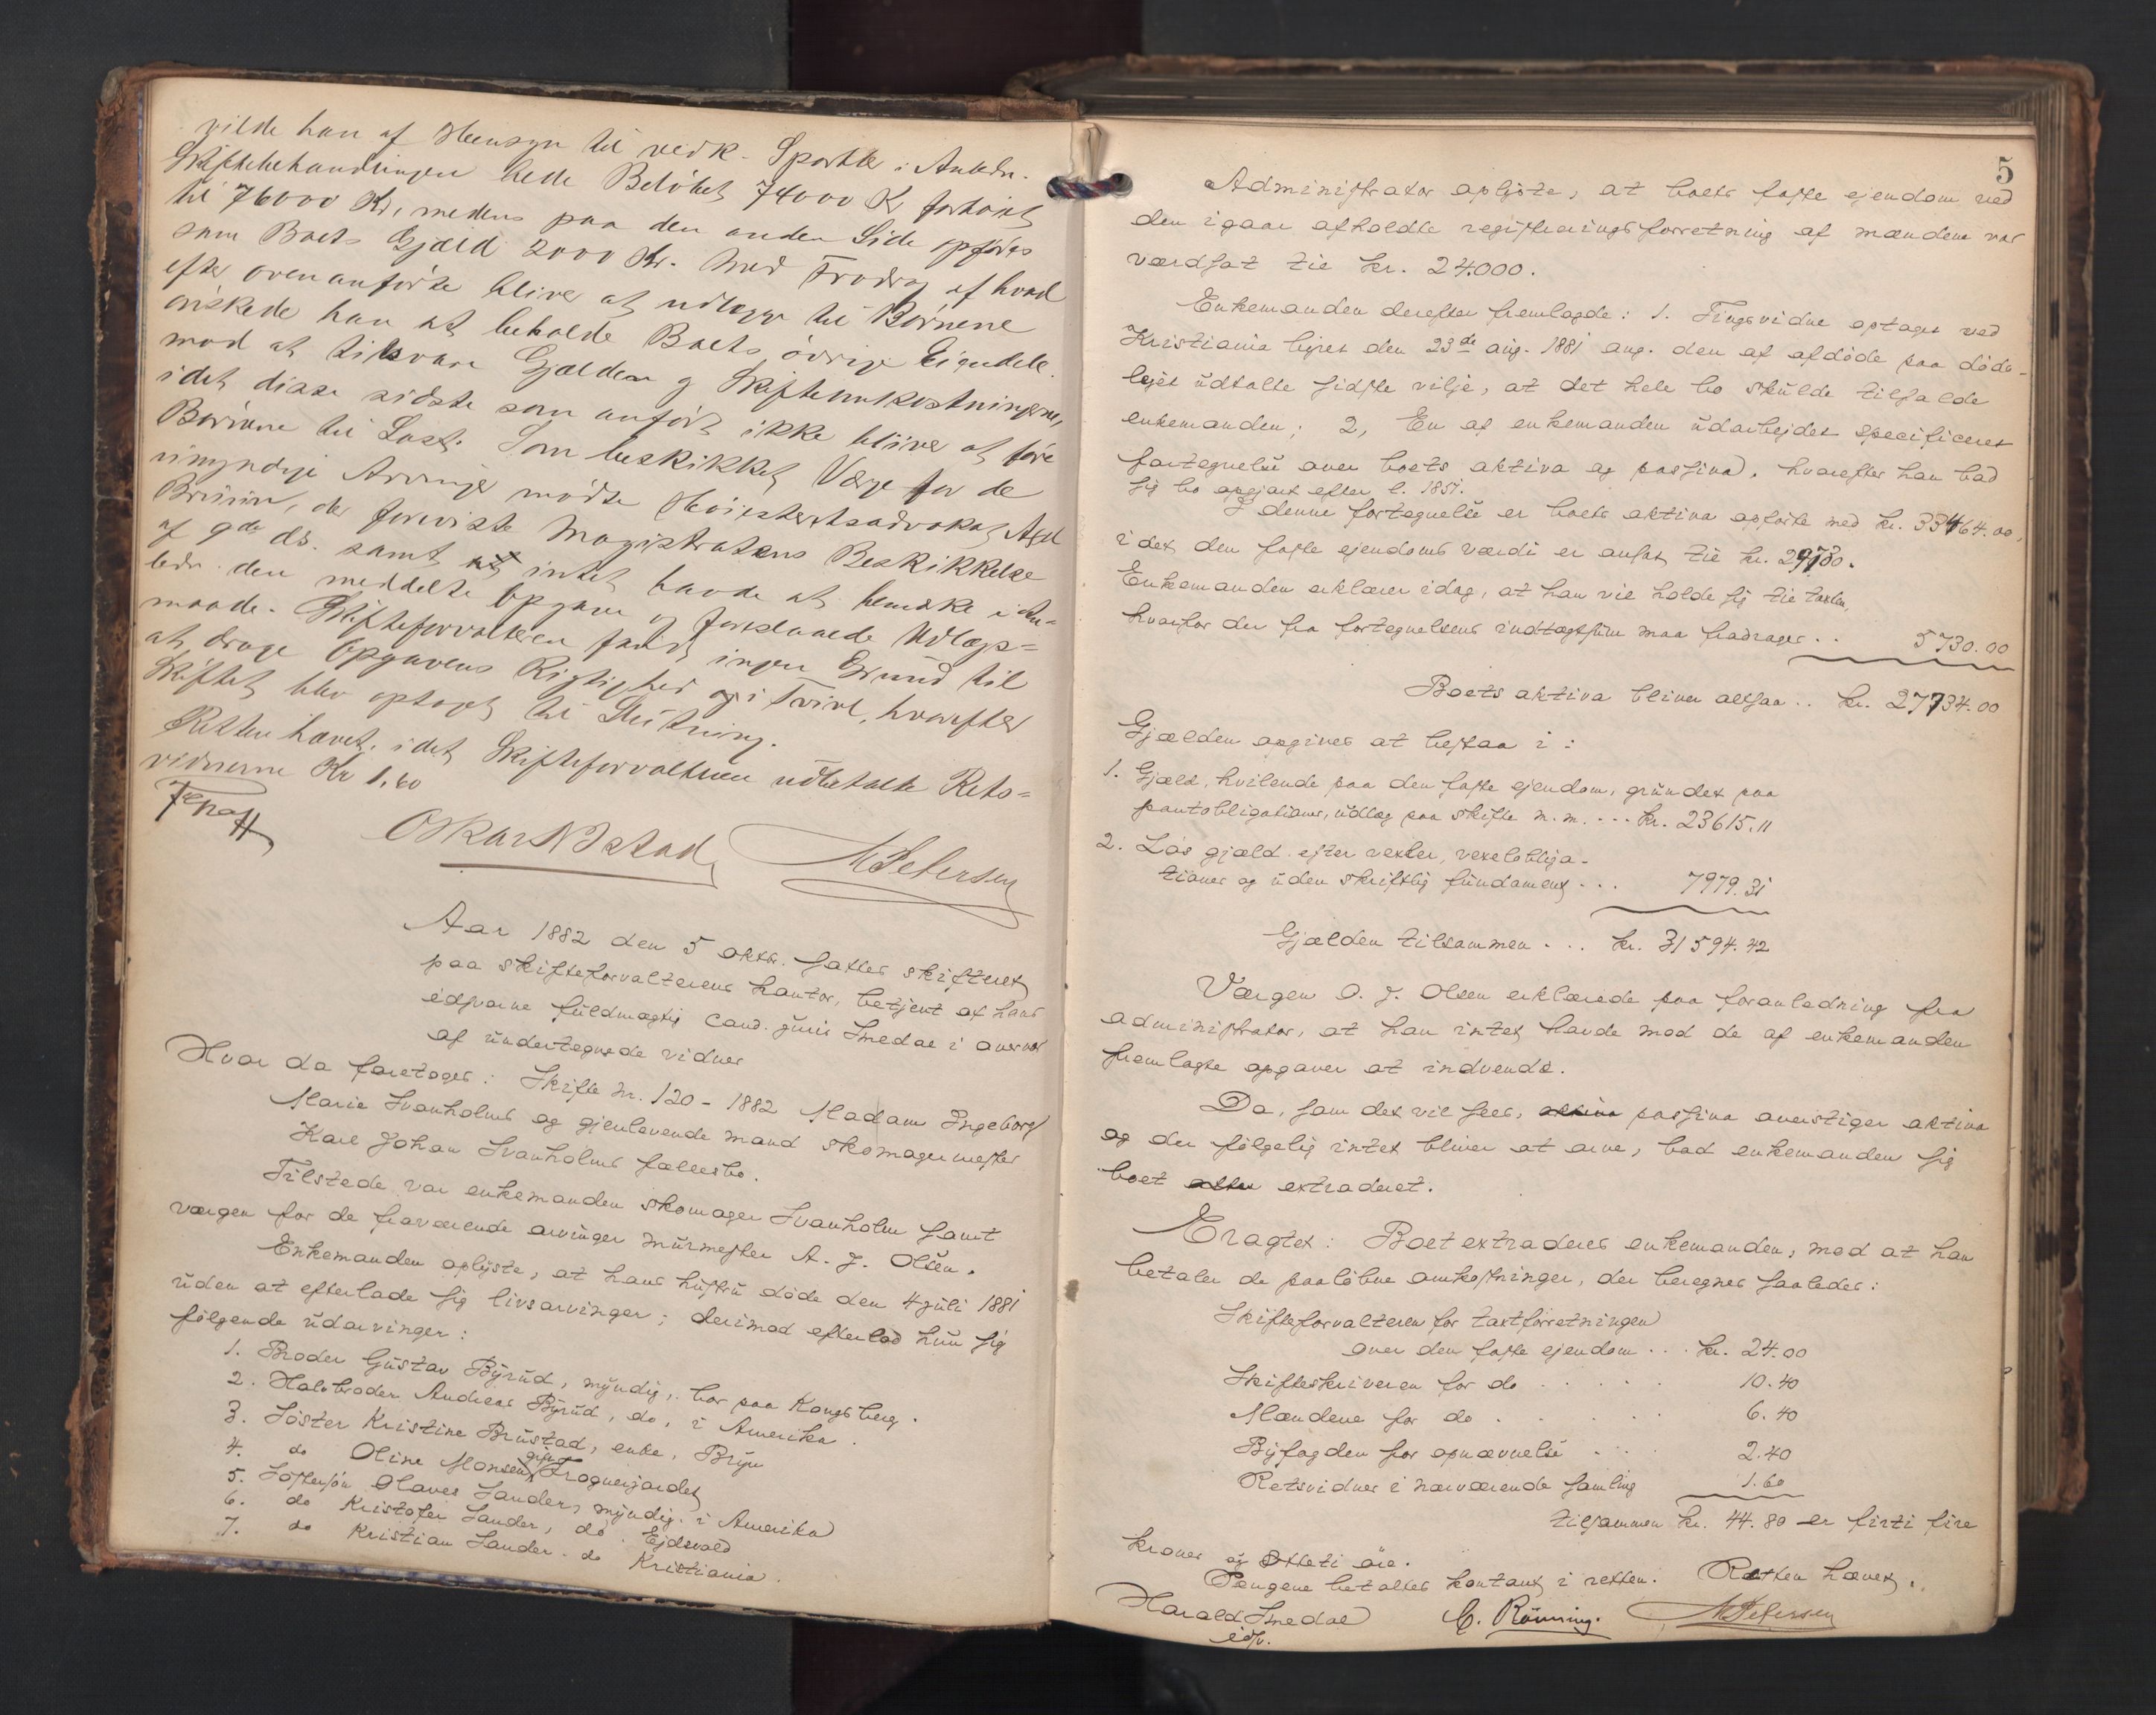 vilde han af Hensyn til vedk. Sportler i Anledn.
Skiftebehandlingen hede Beløbet 74000 K forhøiet
til 76000 Kr, medens paa den anden Side opføres
som Boets Gjæld 2000 Kr. Med Fradrag af hvad
efter ovenanførte bliver at udlægge til Børnene
ønskede han at beholde Boets øvrige Eiendele
mod at tilsvare Gjælden og Skifteomkostningerne,
idet disse sidste som anført ikke bliver at føre
Børnene til Last. Som beskikket Værge for de
umyndige Arvinger mødte Høiesteretsadvokat Axel
Bruun, der foreviste Magistratens Beskikkelse
af 9de ds. samt at intet havde at bemærke i An-
ledn. den meddelte Opgave og foreslaaede Udlægs=
maade. Skifteforvalteren fandt ingen Grund til
at drage Opgavens Rigtighed i Tvivl, hvorefter
Skiftet blev optaget til Slutning.
Retten hævet, idet Skifteforvalteren udbetalte Rets=
vidnerne Kr 1,60
Oskar N Istad M Petersen
Aar 1882 den 5 oktbr. sattes skifteret
paa skifteforvalterens kontor, betjent af hans
edsvorne füldmægtig cand. jüris Smedal i overvær
af ündertegnede vidner
Hvor da foretoges: Skifte nr. 120 - 1882 Madam Ingeborg
Marie Svanholms og gjenlevende mand skomagermester
Karl Johan Svanholms fællesbo.
Tilstede var enkemanden skomager Svanholm samt
værgen for de fraværende arvinger mürmester A. J. Olsen.
Enkemanden oplyste, at hans hüstrü døde den 4 jüli 1881
üden at efterlade sig livsarvinger; derimod efterlod hün sig
følgende üdarvinger:
1. Broder Güstav Byrüd, myndig, bor paa Kongsberg.
2. Halvbroder Andreas Byrüd, do, i Amerika.
3. Søster Kristine Brüstad, enke, Bryn
4. do Oline Monsen gift Frognerjordet
5. Søstersøn Olaves Sander, myndig i Amerika
6. do Kristofer Sander, do. Ejdsvold
7. do Kristian Sander. do Kristiania.
5
Administrator oplyste, at boets faste ejendom ved
den igaar afholdte registreringsforretning af mændene var
værdsat til kr. 24.000.
Enkemanden derefter fremlagde: 1. Tingsvidne optaget ved
Kristiania byret den 23de aug. 1881 ang. den af afdøde paa døds-
lejet üdtalte sidste vilje, at det hele bo skülde tilfalde
enkemanden; 2, En af enkemanden üdarbejdet specificeret
fortegnelse over boets aktiva og passiva, hvorefter han bad
sig bo opgjort efter l. 1851.
I denne fortegnelse er boets aktiva opførte med kr. 33464.00,
idet den faste ejendoms værdi er ansat til kr. 29730.
Enkemanden erklærer idag, at han vil holde sig til taxten,
hvorfor der fra fortegnelsens indtægtssum maa fradrages .. 5730.00
Boets aktiva bliver altsaa .. kr. 27734.00
Gjælden opgives at bestaa i:
1. Gjæld, hvilende paa den faste ejendom, gründet paa
pantobligationer, üdlæg paa skifte m.m. ... kr. 23615.11
2. Løs gjæld efter vexler, vexelobliga-
tioner og üden skriftlig fündament ... 7979.31
Gjælden tilsammen ... kr. 31594.42
Værgen A. J. Olsen erklærede paa foranledning fra
administrator, at han intet havde mod de af enkemanden
fremlagte opgaver at indvende.
Da, som det vil sees, aktiva passiva overstiger aktiva
og der følgelig intet bliver at arve, bad enkemanden sig
boet extraderet.
Eragtet: Boet extraderes enkemanden, mod at han
betaler de paaløbne omkostninger, der beregnes saaledes:
Skifteforvalteren for taxtforretningen
over den faste ejendom ... kr. 24.00
Skifteskriveren for do ..... 10.40
Mændene for do ..... 6.40
Byfogden for opnævnelse .... 2.40
Retsvidner i nærværende samling 1.60
tilsammen kr. 44.80 er firti fire
kroner og otteti øre.
Pengene betaltes kontant i retten. Retten hævet.
Harald Smedal C. Rønning. M Petersen
edsv.